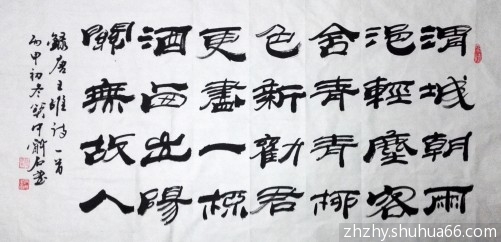 渭城朝雨
浥輕塵客
舍青青柳
色新勸君
更盡一杯
酒西出陽
關無故人
錄唐王維詩一首
丙申初冬
zhzhy.shuhua66.com